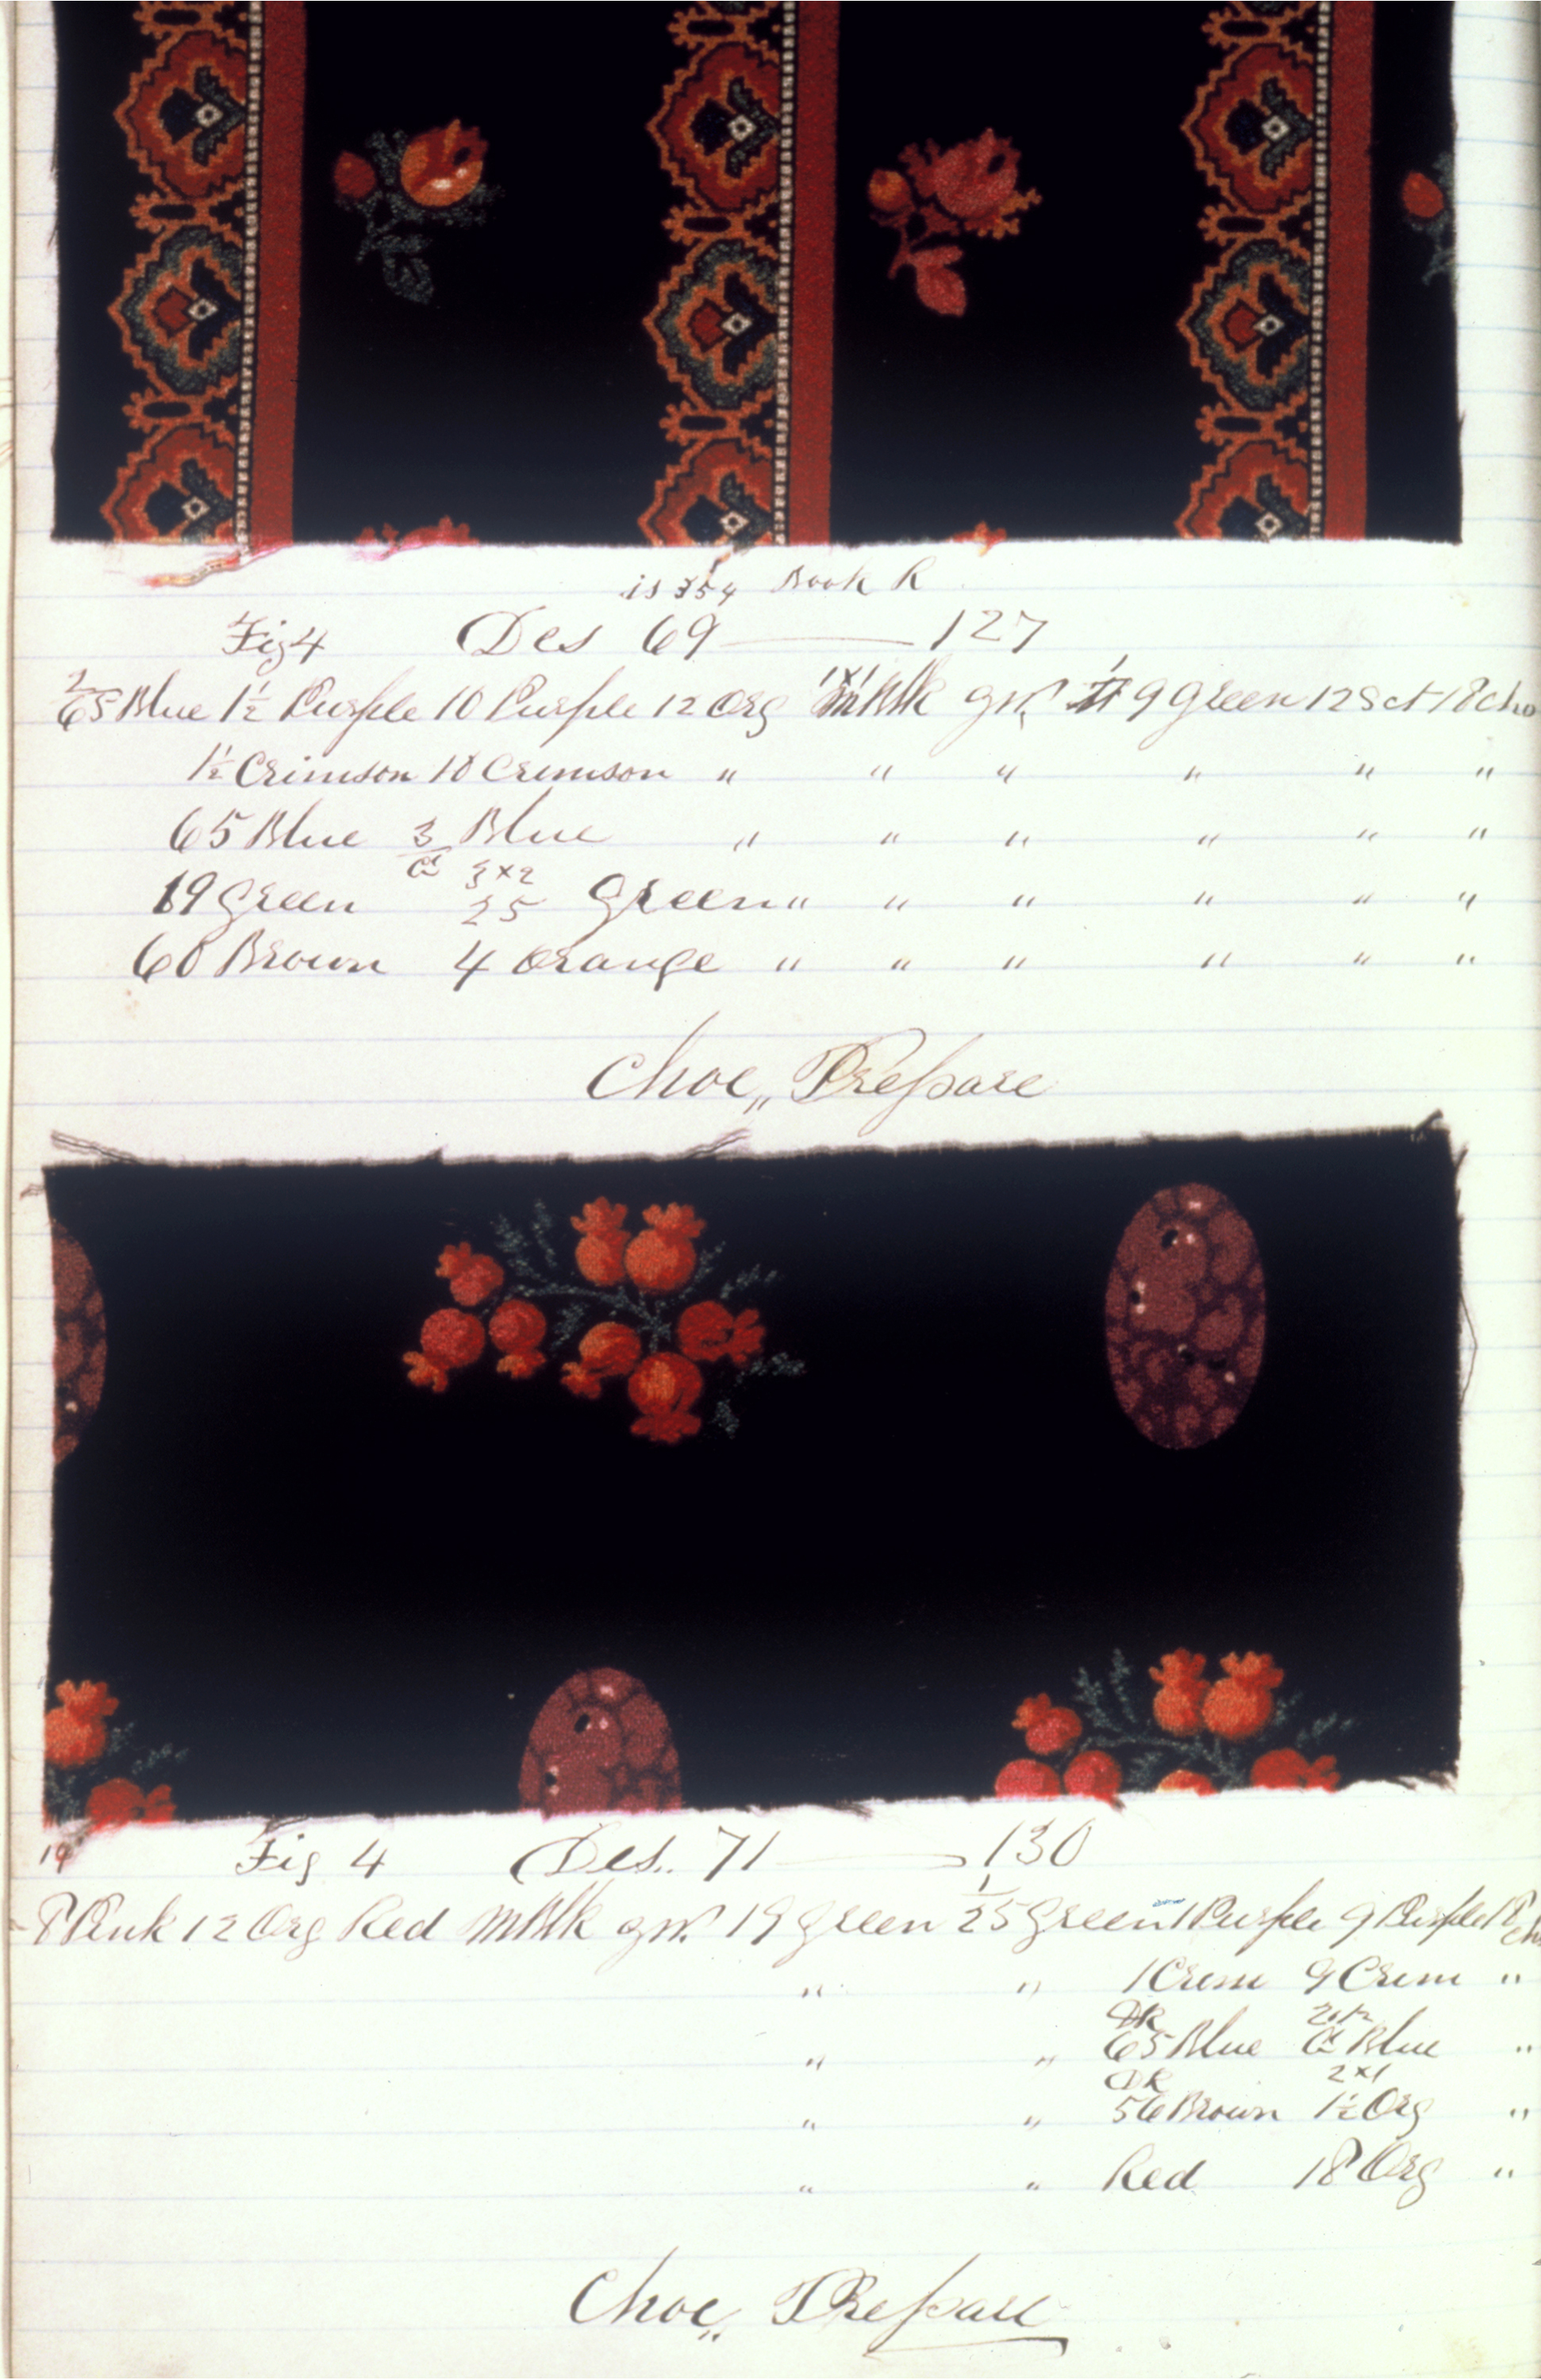 is 354 Book R
Fig 4 Des 69 — 127
65 Blue 1½ Purple 10 Purple 12 Org 1x1 Blk gw. 9 Green 12 Sct 18 cho
1½ Crimson 10 Crimson " " " " " "
65 Blue 3 Blue " " " " " "
19 Green 3x2 25 Green " " " " " "
60 Brown 4 Orange " " " " " "
Choc,, Prepare
19 Fig 4 Des. 71 — 130
8 Pink 12 Org Red mBlk gw. 19 Green 1/25 Green 1 Purple 9 Purple
" " 1 Crem 9 Crem "
DK
" " 65 Blue Blue "
DK 2x1
" " 56 Brown 1½ Org "
" " Red 18 Org "
Choc,, Prepare